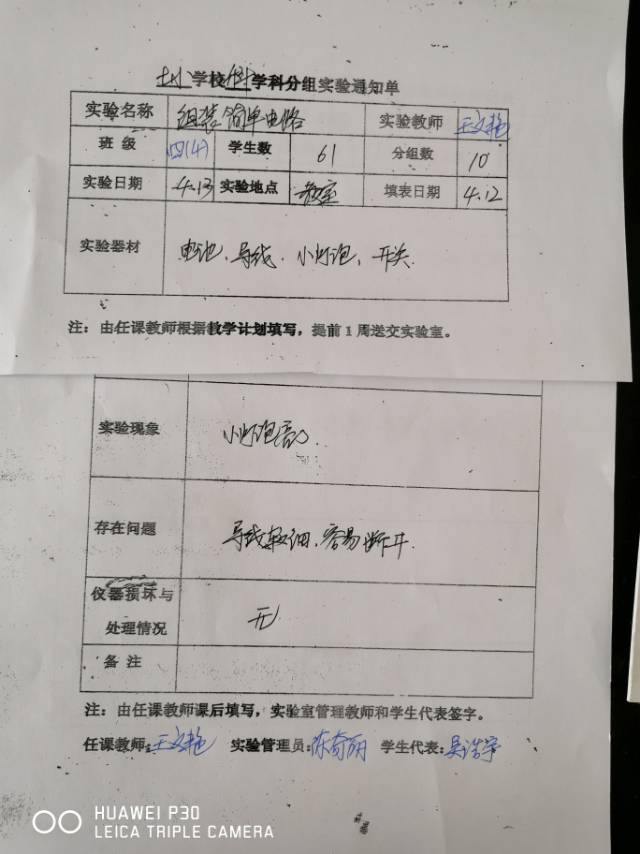 小学校科学科分组实验通知单
实验名称 组装简单电路 实验教师 王文艳
班级 四(4) 学生数 61 分组数 10
实验日期 4.13 实验地点 教室 填表日期 4.12
实验器材 电池、导线、小灯泡、开关.
注：由任课教师根据教学计划填写，提前1周送交实验室。
实验现象 小灯泡亮.
存在问题 导线较细、容易断开.
仪器损坏与
处理情况 无
备注
注：由任课教师课后填写，实验室管理教师和学生代表签字。
任课教师:王文艳 实验管理员:陈奇丽 学生代表:吴浩宇
HUAWEI P30
LEICA TRIPLE CAMERA